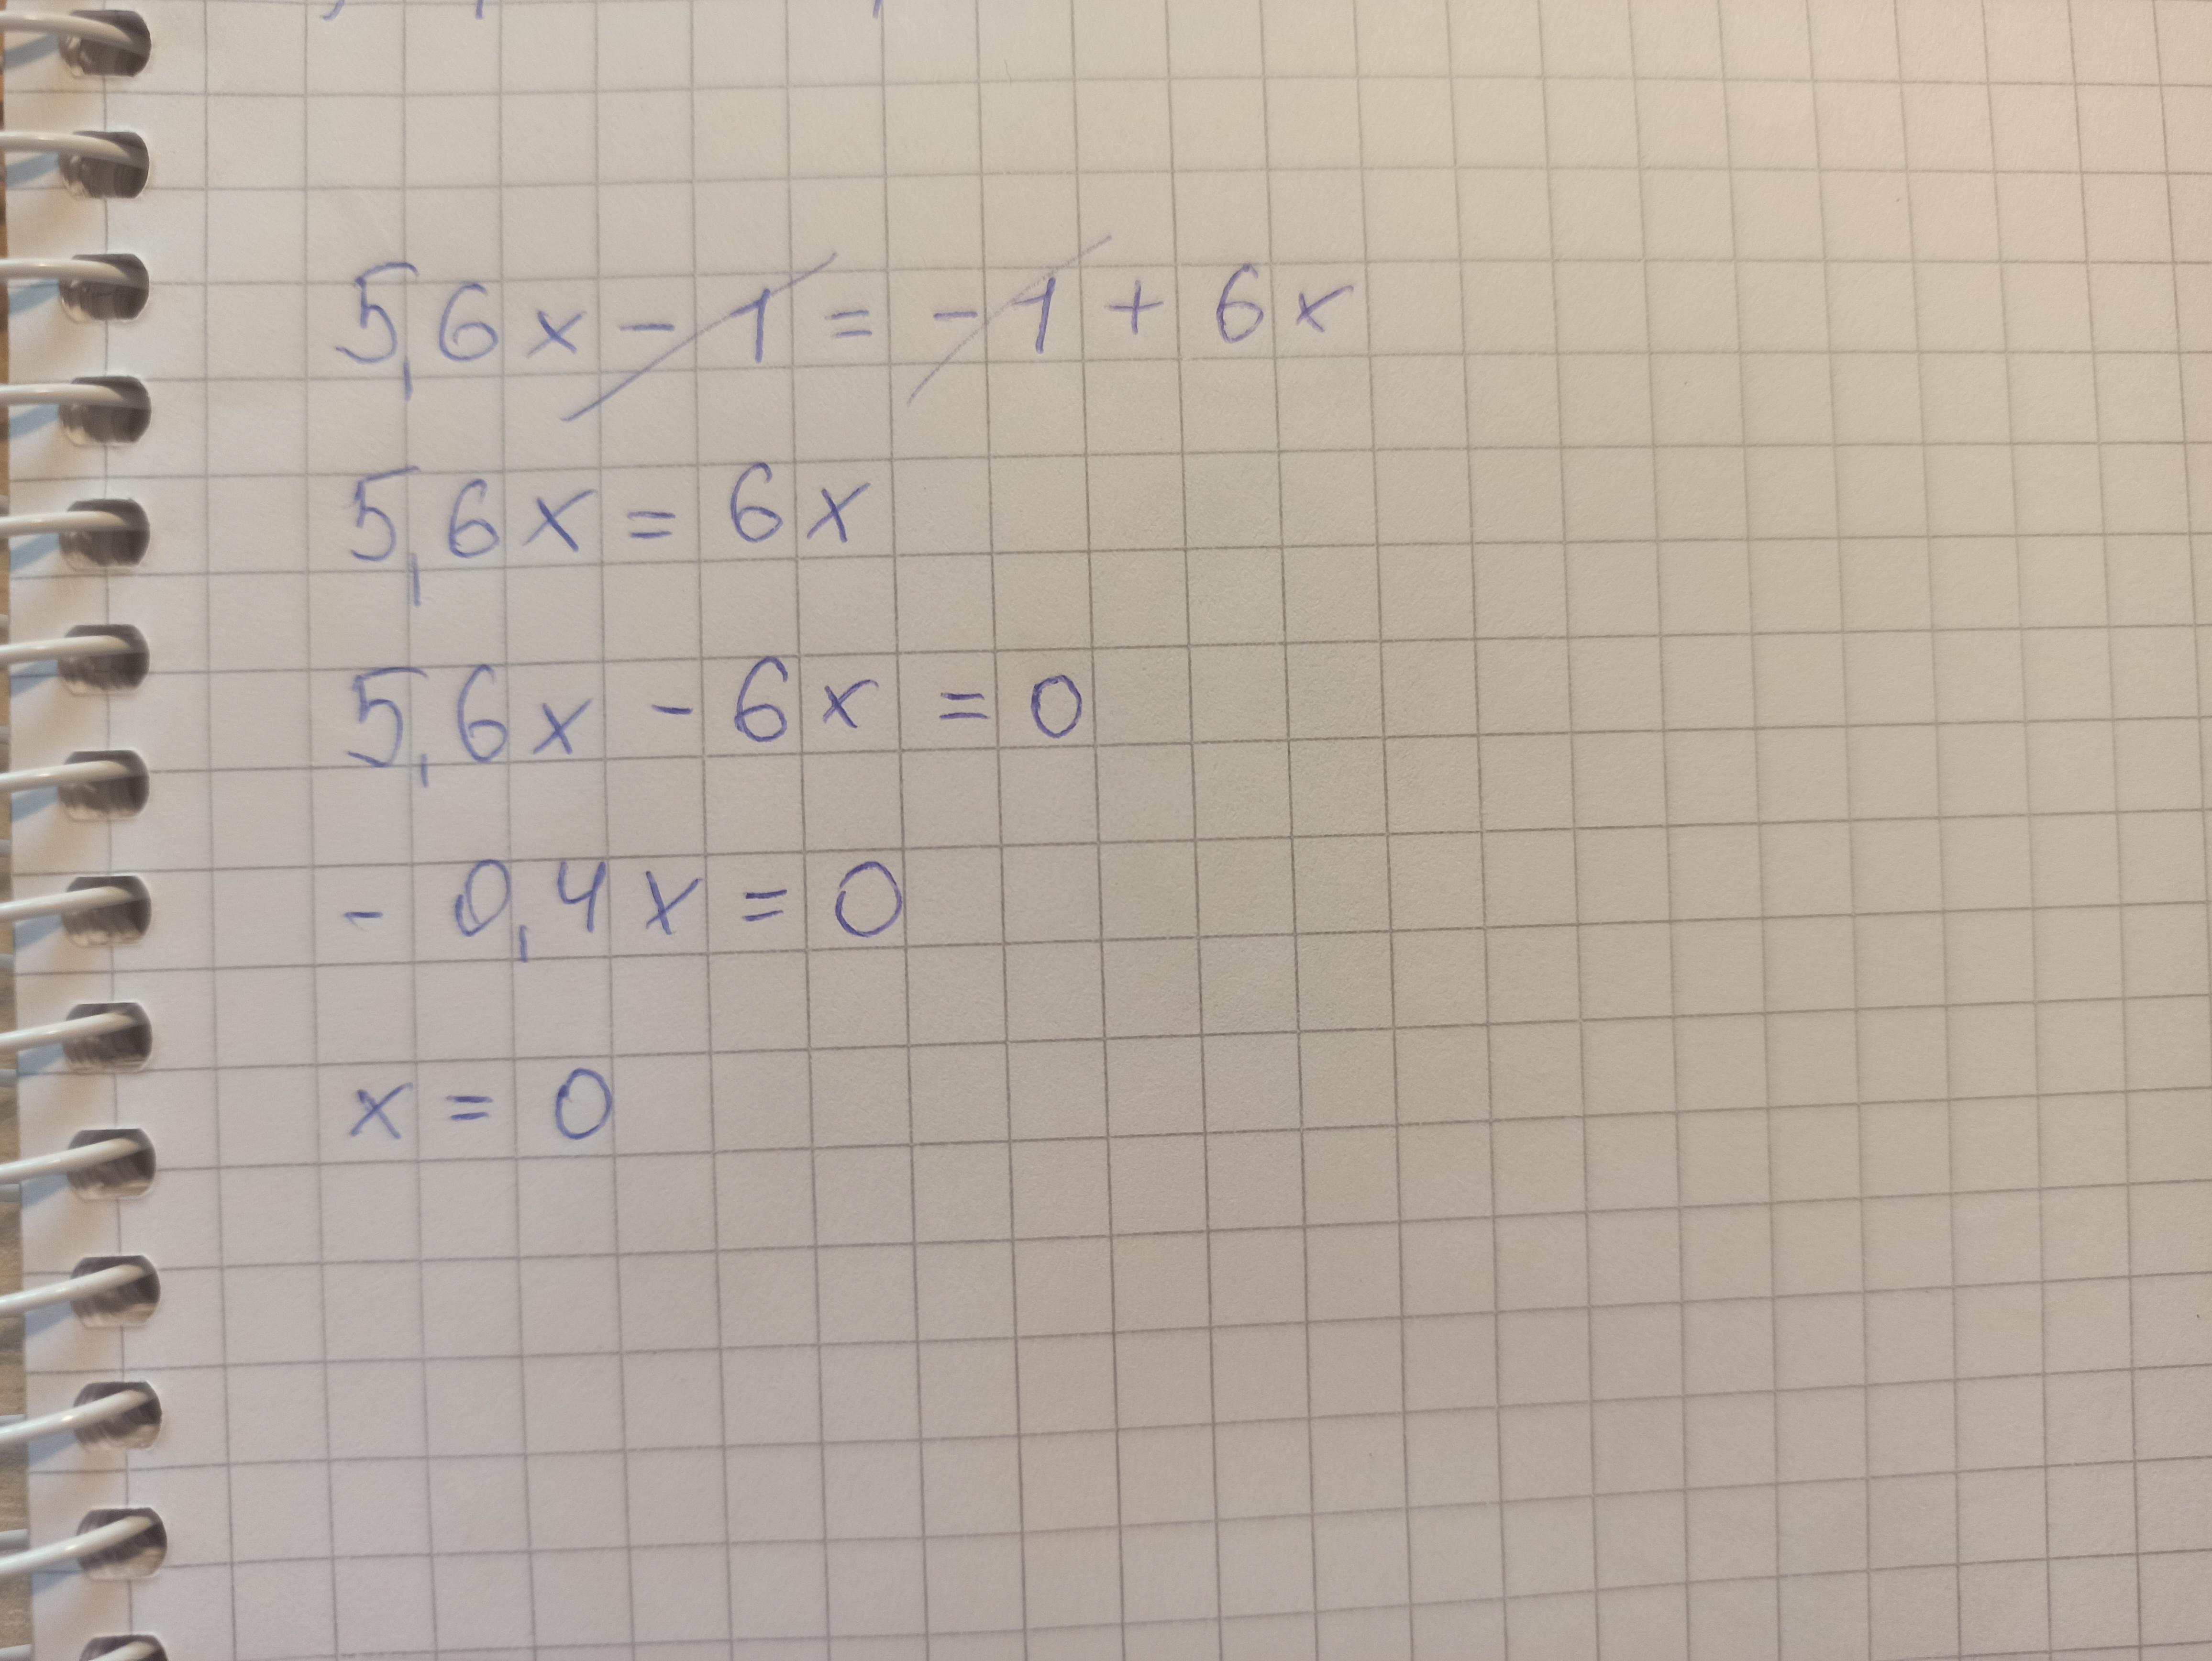 5,6x - 1 = -1 + 6x
5,6x = 6x
5,6x - 6x = 0
- 0,4x = 0
x = 0